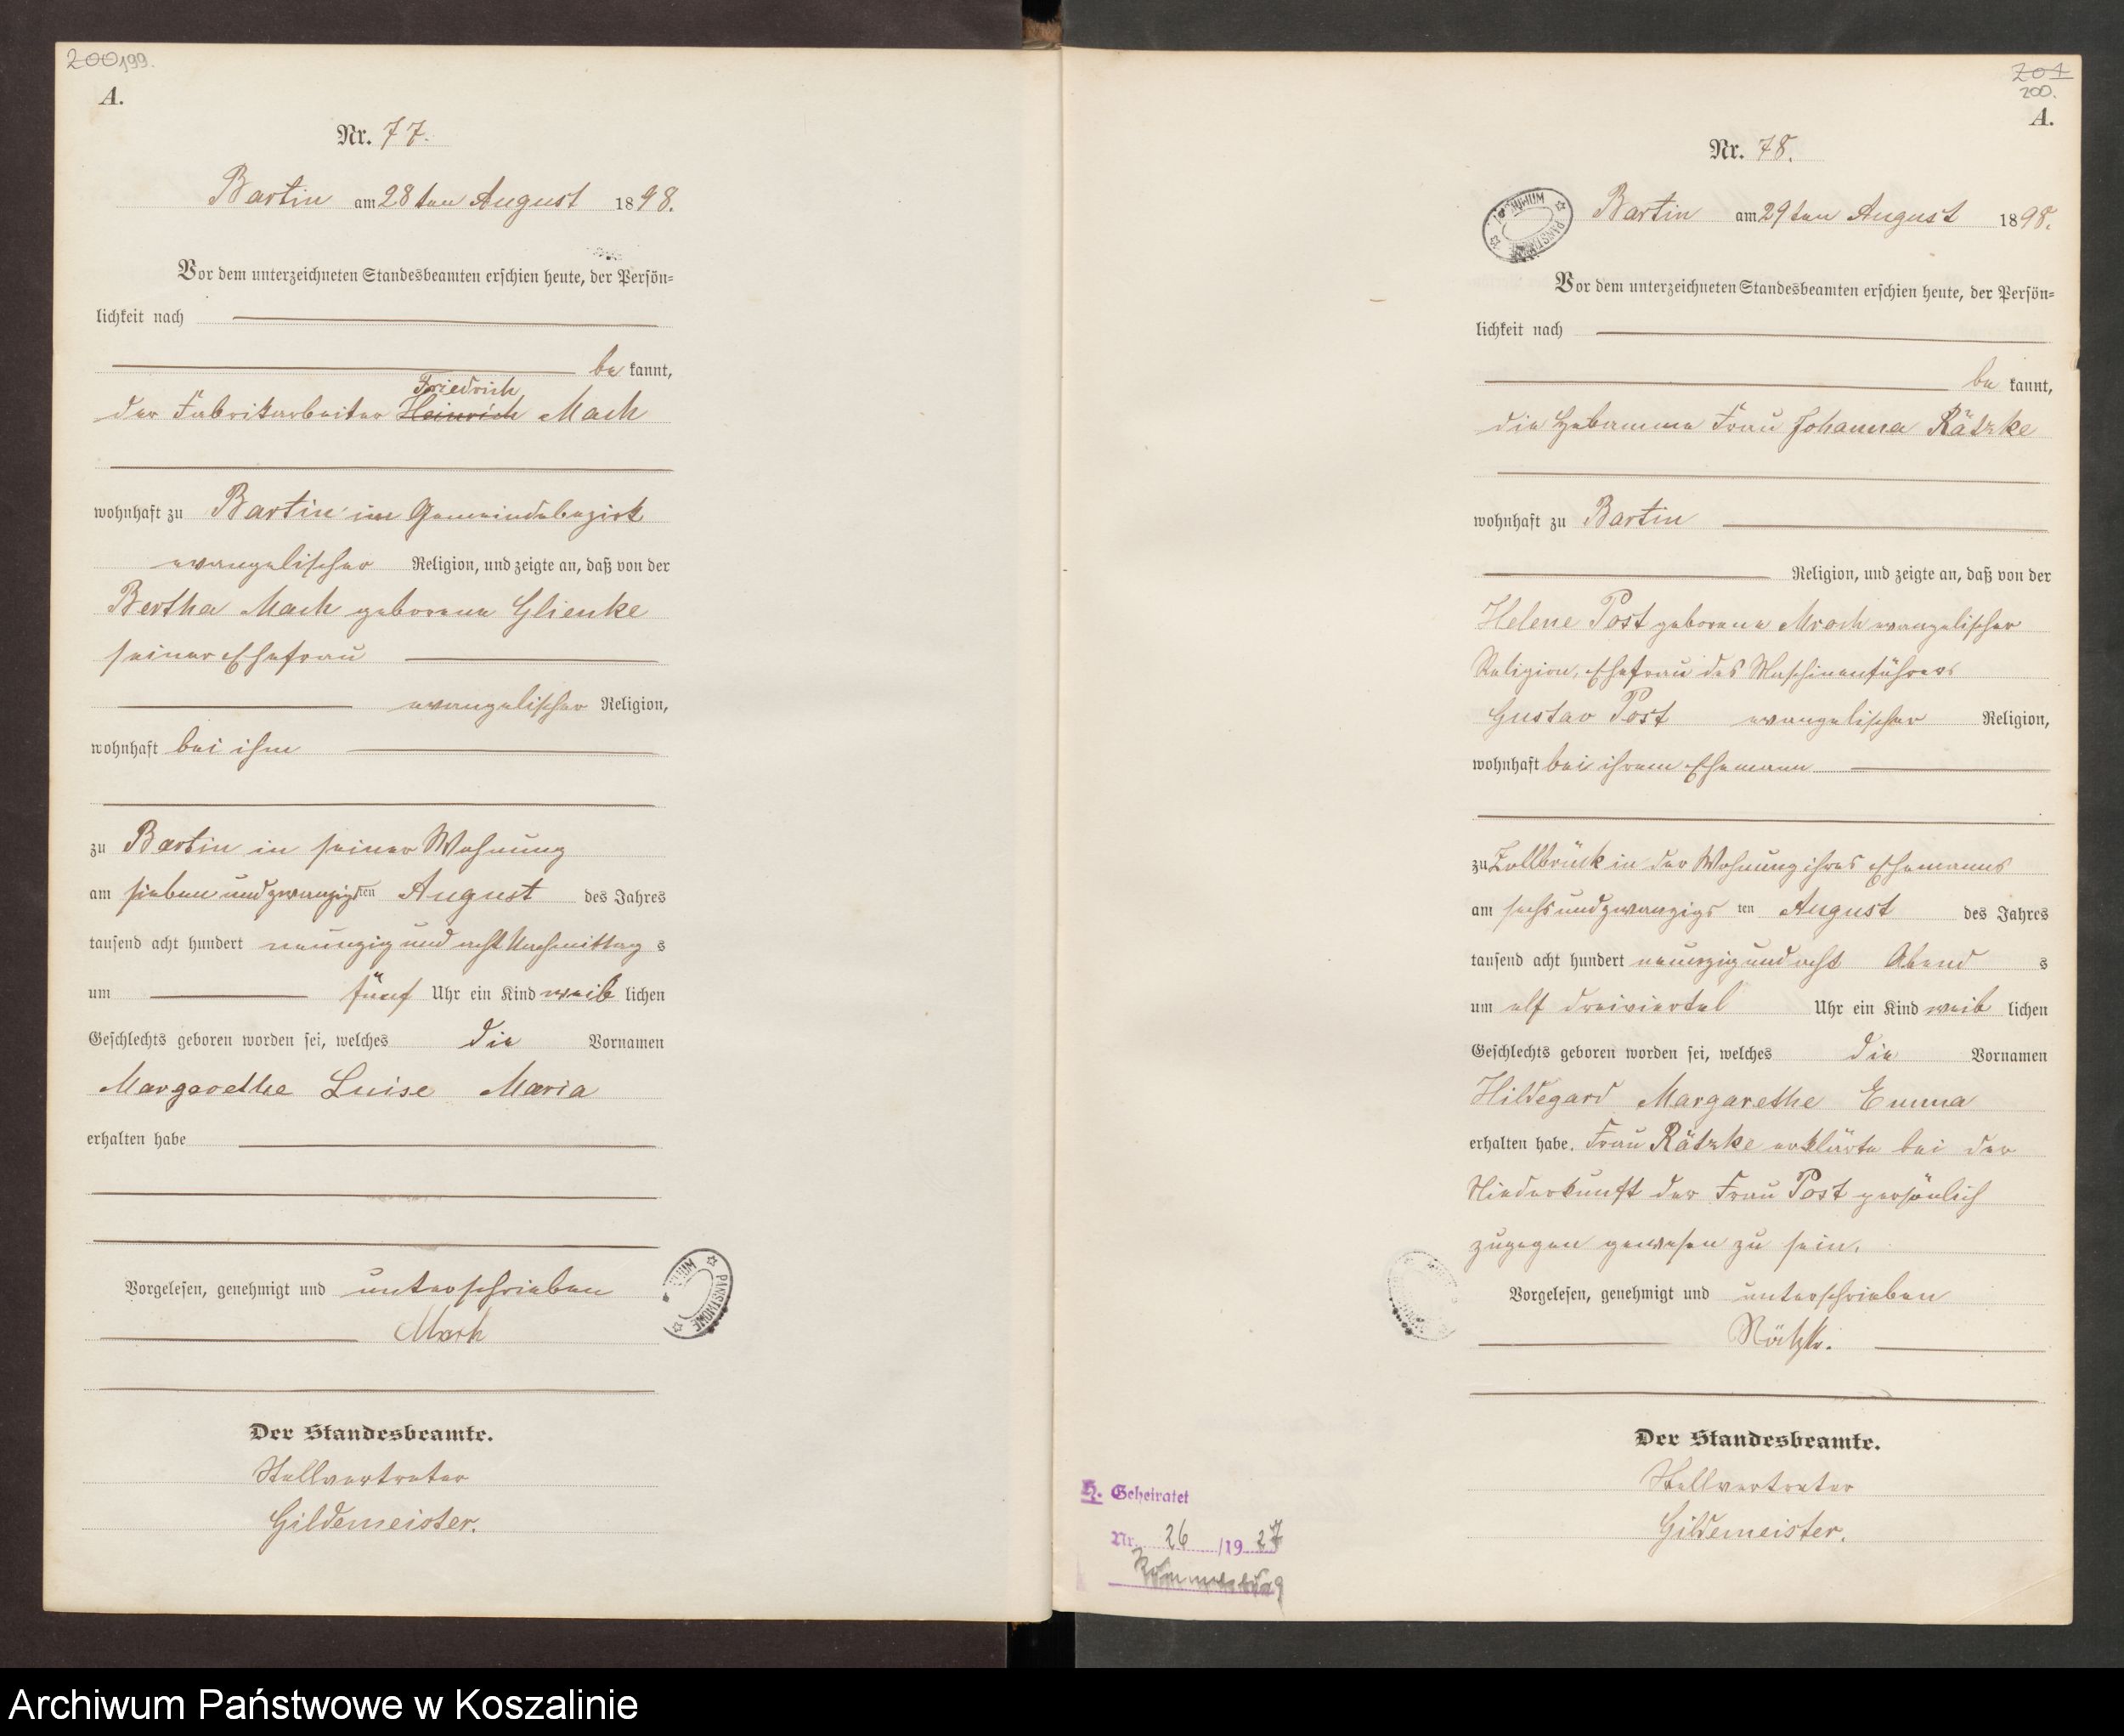 200 199.
A.
Nr. 77.
Bartin am 28ten August 1898.
Vor dem unterzeichneten Standesbeamten erschien heute, der Persön=
lichkeit nach
be kannt,
Friedrich
der Fabrikarbeiter Heinrich Mach
wohnhaft zu Bartin im Gemeindebezirk
evangelischer Religion, und zeigte an, daß von der
Bertha Mach geborene Glienke
seiner Ehefrau
evangelischer Religion,
wohnhaft bei ihm
zu Bartin in seiner Wohnung
am siebenundzwanzigsten August des Jahres
tausend acht hundert neunzig und acht Nachmittag s
um fünf Uhr ein Kind weib lichen
Geschlechts geboren worden sei, welches die Vornamen
Margarethe Luise Maria
erhalten habe
Vorgelesen, genehmigt und unterschrieben
Mach
Der Standesbeamte.
Stellvertreter
Gildemeister.
201
200.
A.
Nr. 78.
Bartin am 29ten August 1898.
Vor dem unterzeichneten Standesbeamten erschien heute, der Persön=
lichkeit nach
be kannt,
die Hebamme Frau Johanna Rätzke
wohnhaft zu Bartin
Religion, und zeigte an, daß von der
Helene Post geborene Mroch evangelischer
Religion, Ehefrau des Maschinenführers
Gustav Post evangelischer Religion,
wohnhaft bei ihrem Ehemann
zu Zollbrück in der Wohnung ihres Ehemanns
am sechsundzwanzigs ten August des Jahres
tausend acht hundert neunzig und acht Abend s
um elf dreiviertel Uhr ein Kind weib lichen
Geschlechts geboren worden sei, welches die Vornamen
Hildegard Margarethe Emma
erhalten habe. Frau Rätzke erklärte bei der
Niederkunft der Frau Post persönlich
zugegen gewesen zu sein.
Vorgelesen, genehmigt und unterschrieben
Rätzke.
Der Standesbeamte.
Stellvertreter
Gildemeister.
H. Geheiratet
Nr. 26 /1927
Rummelsburg
Archiwum Państwowe w Koszalinie